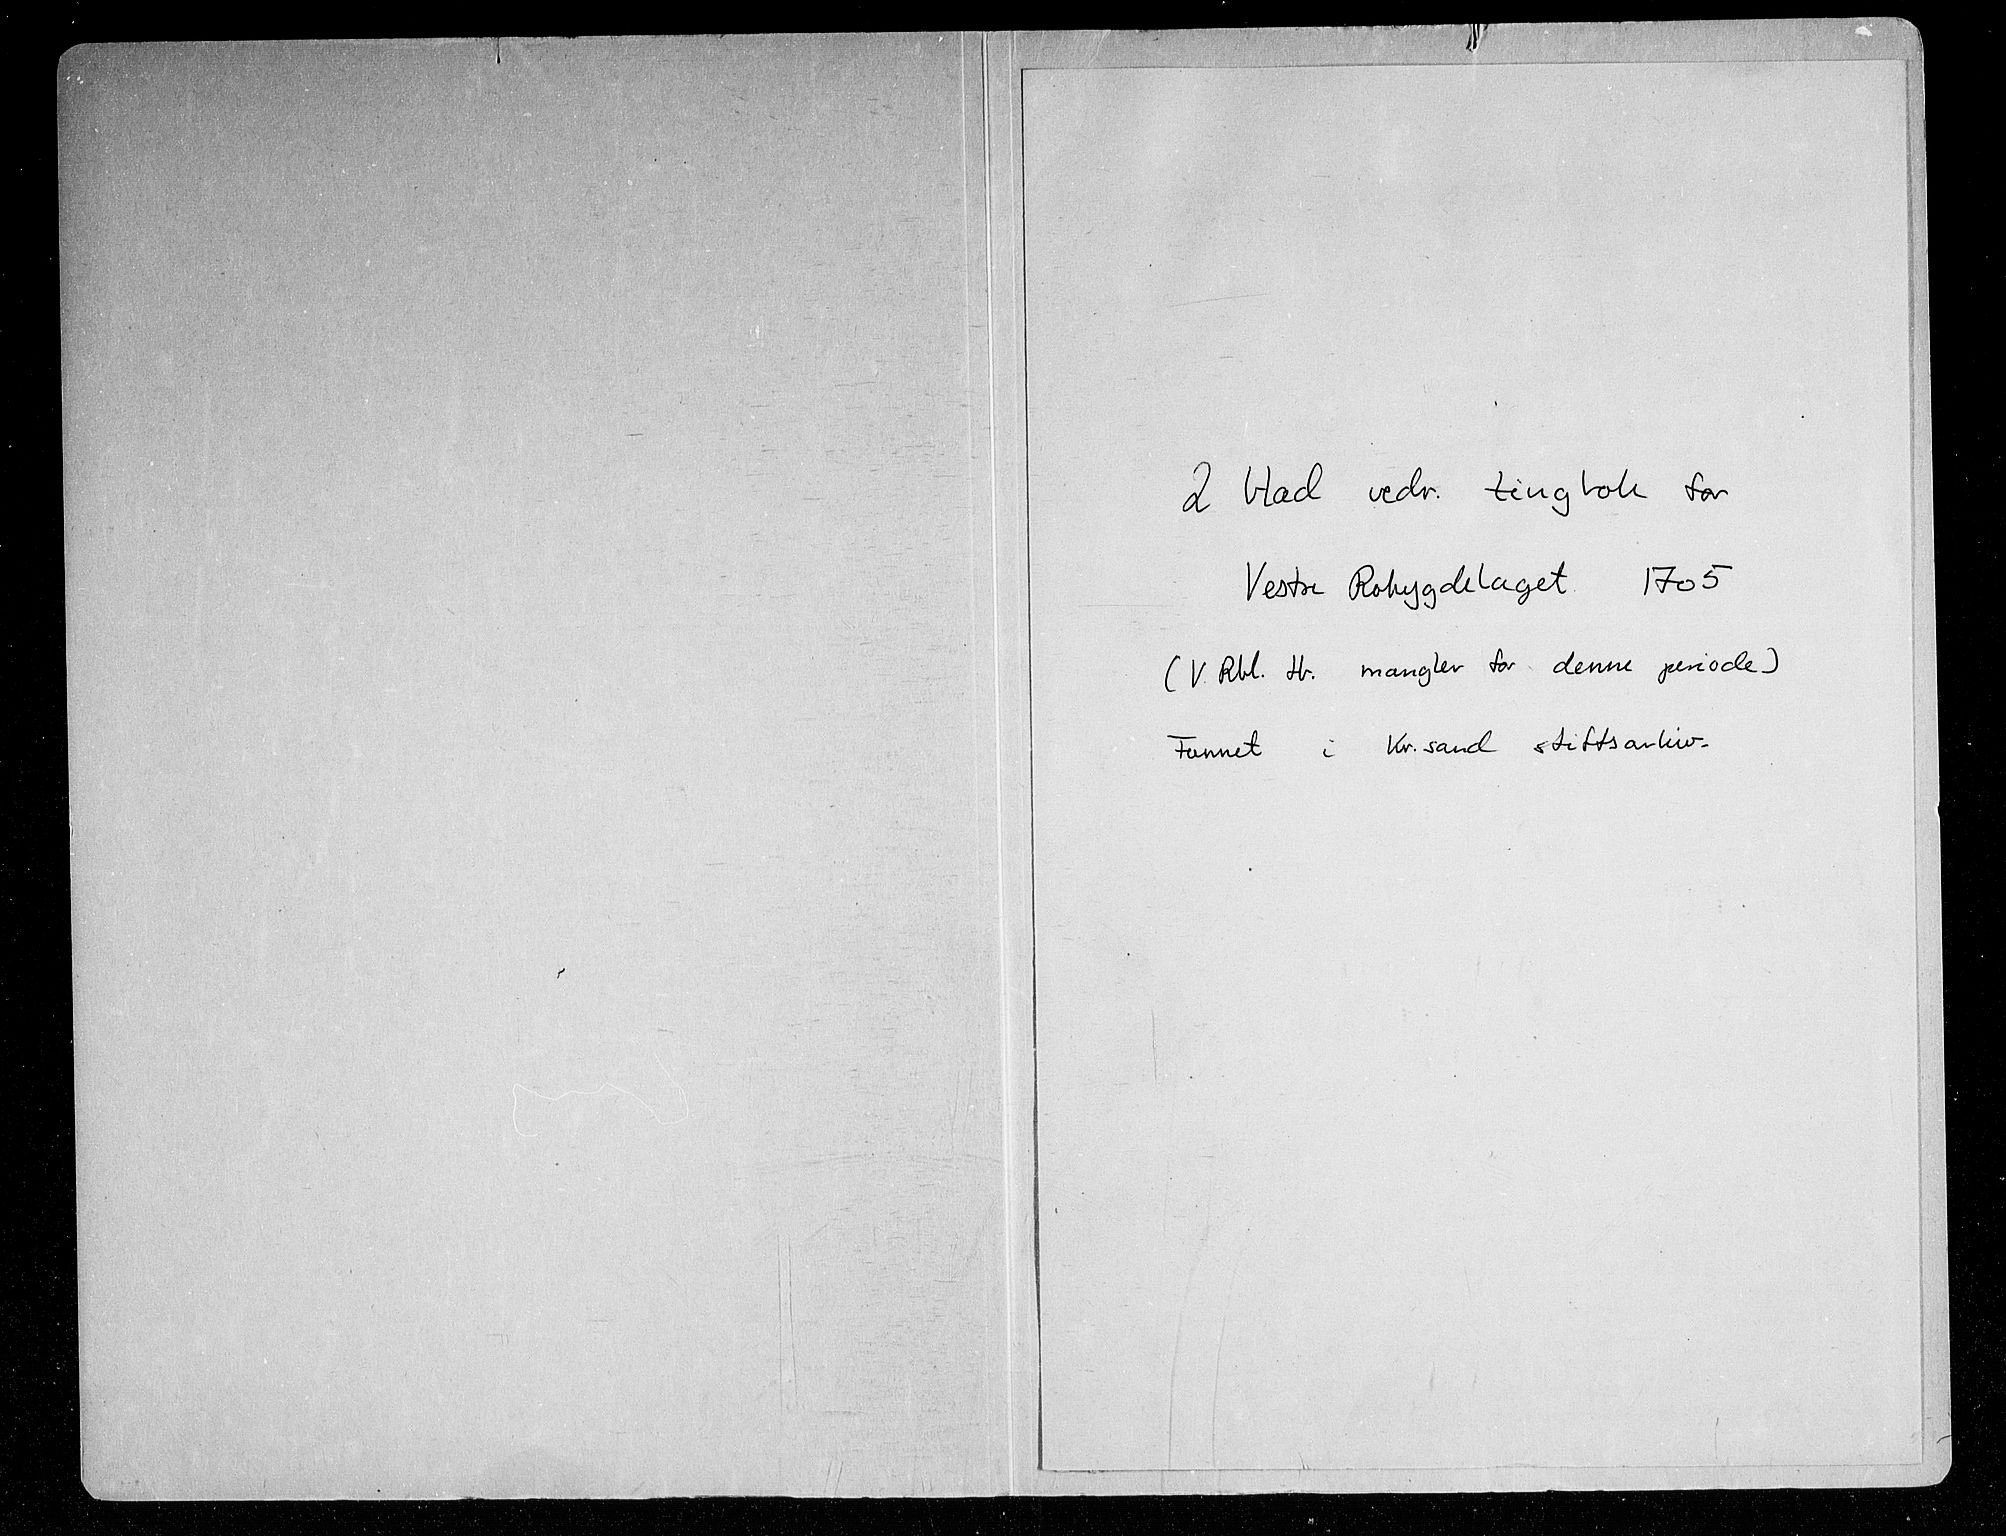 2 blad vedr. tingbok for
Vestre Robygdelaget 1705
(V. Rbl. tb. mangler for denne periode)
Funnet i Kr.sand stiftsarkiv.